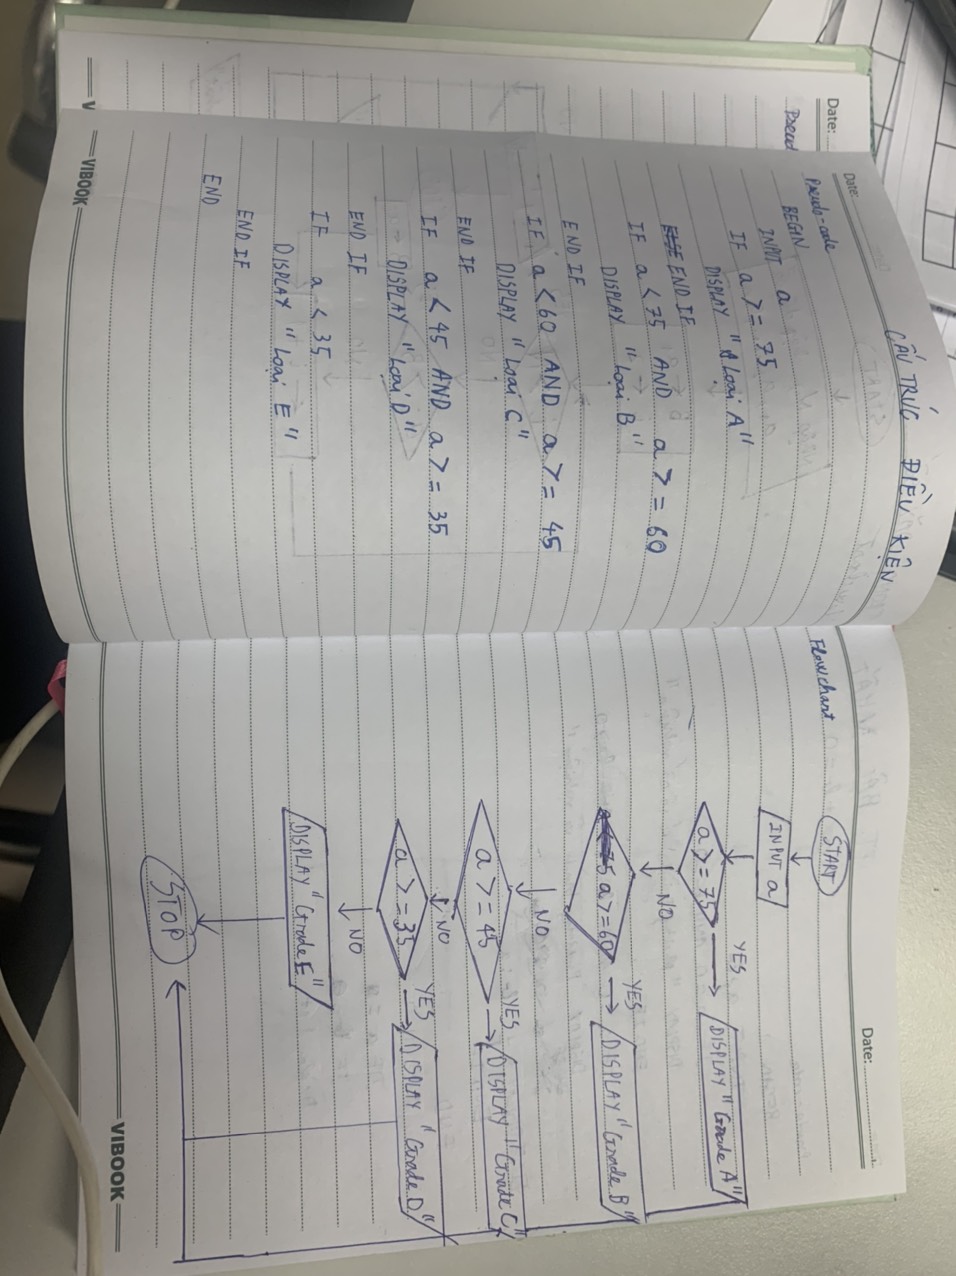 CẤU TRÚC ĐIỀU KIỆN
Date:
Date:
Pseud
Pseudo-code
BEGIN
INPUT a
IF a >= 75
DISPLAY "Loại A"
END IF
IF a < 75 AND a >= 60
DISPLAY "Loại B"
END IF
IF a < 60 AND a >= 45
DISPLAY "Loại C"
END IF
IF a < 45 AND a >= 35
DISPLAY "Loại D"
END IF
IF a < 35
DISPLAY "Loại E"
END IF
END
VIBOOK
Date:
Flowchart
START
INPUT a
a >= 75
YES
DISPLAY "Grade A"
NO
a >= 60
YES
DISPLAY "Grade B"
NO
a >= 45
YES
DISPLAY "Grade C"
NO
a >= 35
YES
DISPLAY "Grade D"
NO
DISPLAY "Grade E"
STOP
VIBOOK